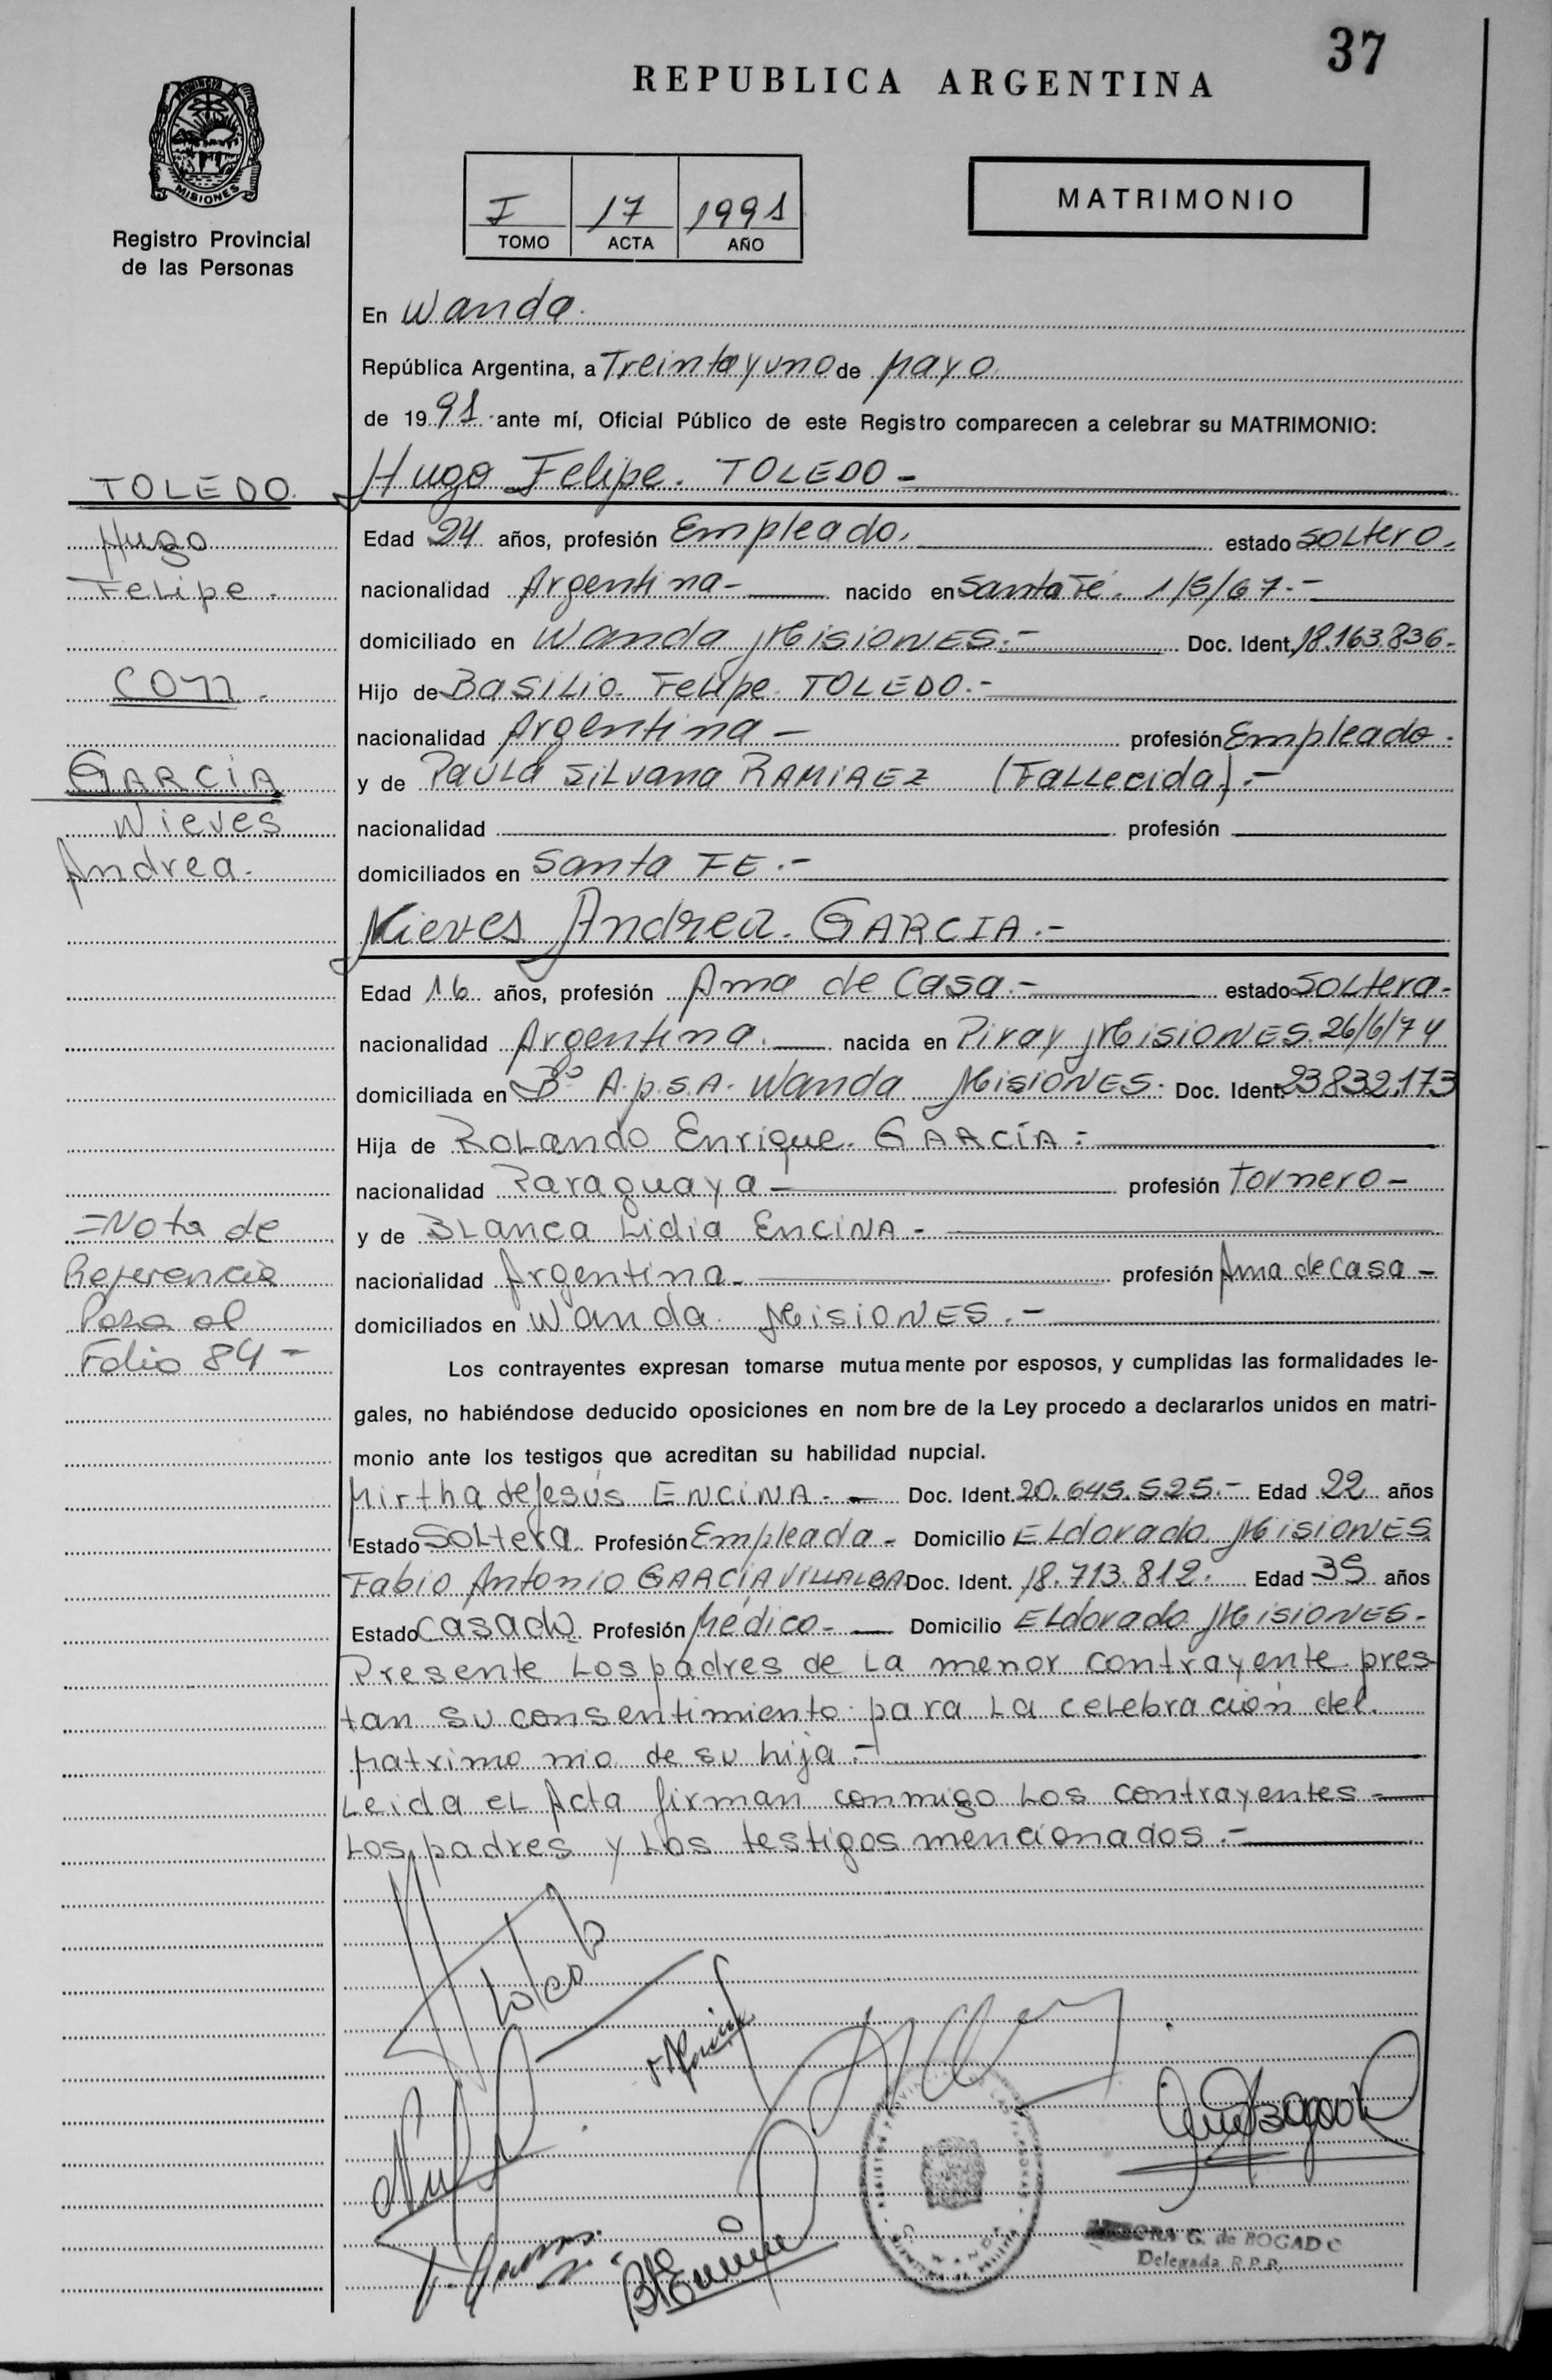 37
REPUBLICA ARGENTINA
MISIONES
Registro Provincial
de las Personas
I 17 1991
TOMO ACTA AÑO
MATRIMONIO
En Wanda.
República Argentina, a Treinta y uno de Mayo
de 1991 ante mí, Oficial Público de este Registro comparecen a celebrar su MATRIMONIO:
TOLEDO.
Hugo
Felipe.
con -
GARCIA
Nieves
Andrea.
Hugo Felipe. TOLEDO -
Edad 24 años, profesión Empleado. estado soltero.
nacionalidad Argentina - nacido en Santa Fé. 1/5/67.-
domiciliado en Wanda Misiones.- Doc. Ident. 18.163.836.
Hijo de Basilio Felipe TOLEDO.-
nacionalidad Argentina - profesión Empleado.
y de Paula Silvana RAMIREZ (Fallecida).-
nacionalidad profesión
domiciliados en Santa FE.-
Nieves Andrea. GARCIA.-
Edad 16 años, profesión Ama de Casa.- estado soltera.
nacionalidad Argentina. nacida en Piray Misiones. 26/6/74
domiciliada en Bº A.p.S.A. Wanda Misiones. Doc. Ident. 23832.173
Hija de Rolando Enrique. GARCÍA.-
nacionalidad Paraguaya - profesión Tornero -
y de Blanca Lidia ENCINA -
nacionalidad Argentina. profesión Ama de casa -
domiciliados en Wanda Misiones.-
=Nota de
Referencia
Pasa al
Folio 84 -
Los contrayentes expresan tomarse mutuamente por esposos, y cumplidas las formalidades le-
gales, no habiéndose deducido oposiciones en nombre de la Ley procedo a declararlos unidos en matri-
monio ante los testigos que acreditan su habilidad nupcial.
Mirtha de Jesús ENCINA.- Doc. Ident. 20.645.525.- Edad 22 años
Estado Soltera. Profesión Empleada - Domicilio Eldorado Misiones
Fabio Antonio GARCÍA VILLALBA Doc. Ident. 18.713.812. Edad 35 años
Estado casado Profesión Médico - Domicilio Eldorado Misiones.
Presente los padres de la menor contrayente pres-
tan su consentimiento para la celebración del
Matrimonio de su hija.-
Leida el Acta firman conmigo los contrayentes -
Los padres y los testigos mencionados.-
G. de BOGADO
Delegada R.P.P.